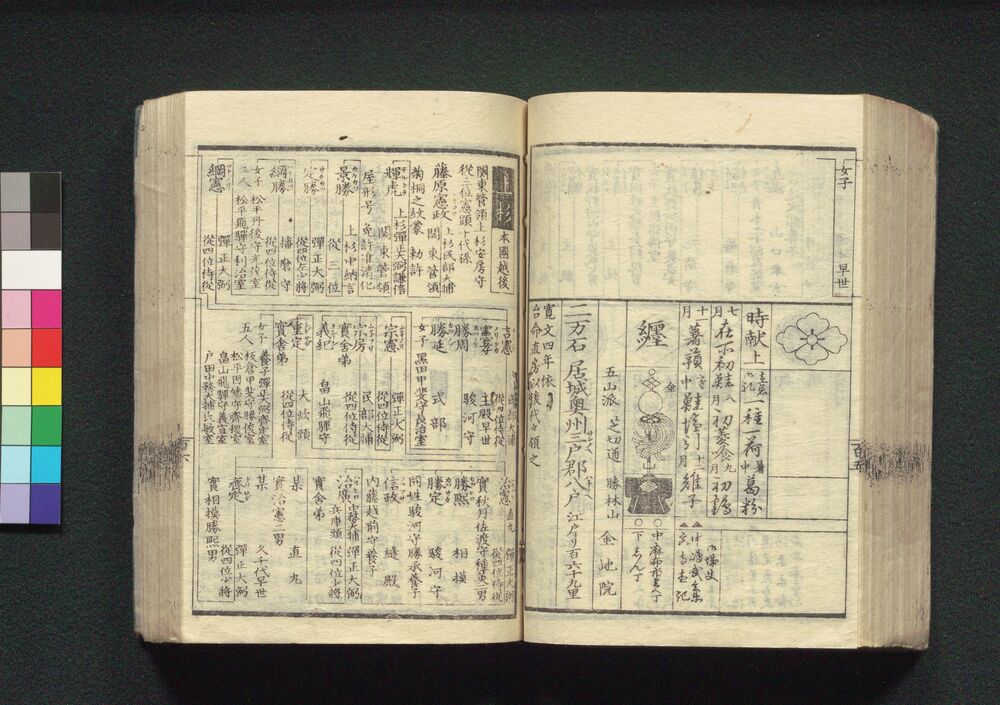 女子
早世
時献上
一種一荷
暑中葛粉
七月
在所初鮭
八月
初菱食
九月
初鶴
十一月
雉子
纏
五山派
芝切通
勝林山
金地院
二万石
居城奥州三戸郡八戸
江戸ヨリ百六十九里
寛文四年依
台命直房以後代々領之
上杉
本國越後
関東管領上杉安房守
從三位憲顕十代孫
藤原憲政
上杉民部大輔
関東管領
菊桐之紋蒙
勅許
輝虎
上杉彈正大弼謙信
関東管領
屋形号
免許淮清化
景勝
上杉中納言
從三位
定勝
彈正大弼
從四位左少將
綱勝
播磨守
從四位侍從
女子
松平丹後守光茂室
三人
松平飛驒守利治室
綱憲
彈正大弼
從四位侍從
吉憲
民部大輔
從四位侍從
憲孝
主殿早世
勝周
駿河守
勝延
式部
女子
黒田甲斐守長貞室
宗憲
彈正大弼
從四位侍從
宗房
民部大輔
實舎弟
從四位侍從
義紀
畠山飛驒守
重定
大炊頭
實舎弟
從四位侍從
女子
五人
養子彈正大弼齊定室
板倉甲斐守勝俊室
松平因幡守齊稷室
畠山飛驒守義宣室
戸田中務大輔氏敏室
治憲
直丸
彈正大弼
從四位侍從
實秋月佐渡守種美二男
勝熙
相摸
勝定
駿河守
同姓駿河守勝承養子
信政
縫殿
内藤越前守養子
治廣
中務大輔
彈正大弼
兵庫頭
從四位少將
實舎弟
某
直丸
實治憲二男
某
久千代早世
齊定
彈正大弼
從四位少將
實相摸勝熙男